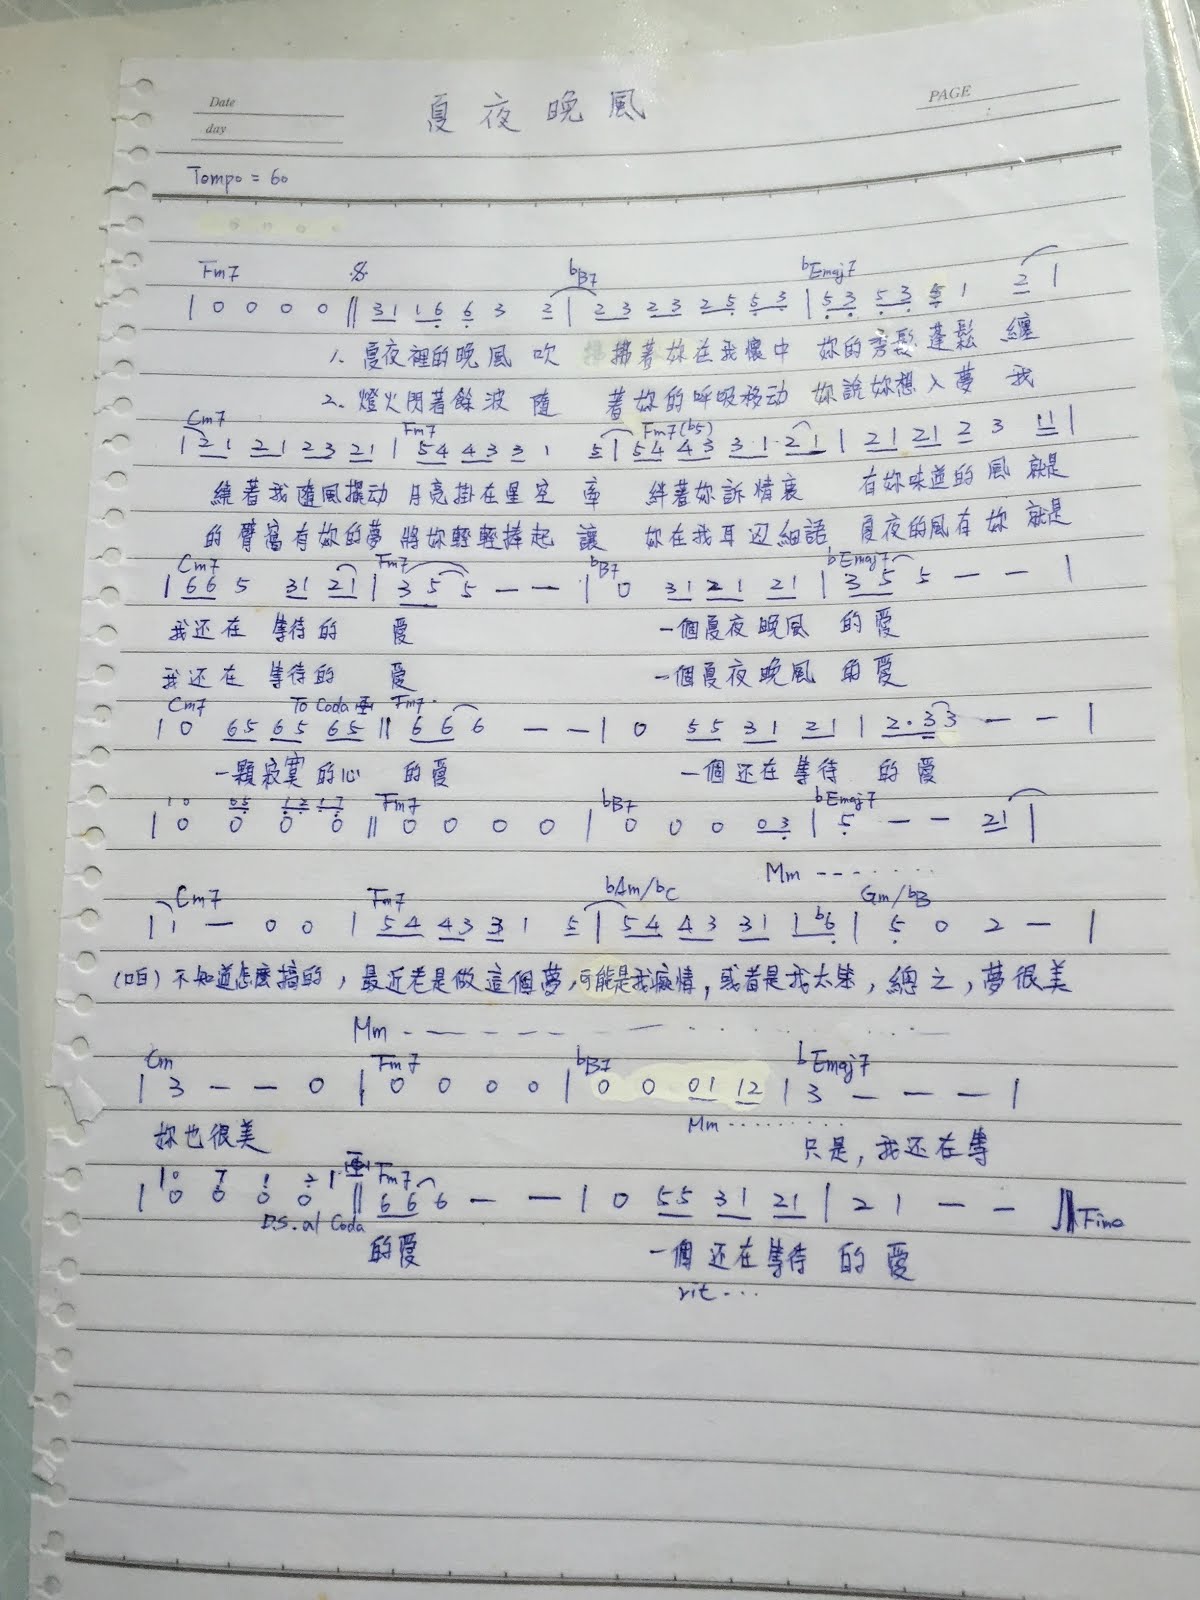 Date
夏夜晚風
PAGE
day
Tempo = 60
Fm7 𝄋 bB7 bEmaj7
| 0 0 0 0 || 31 16 6 3 2 | 23 23 25 53 | 53 53 5 1 2 |
1. 夏夜裡的晚風吹 拂著妳在我懷中 妳的秀髮蓬鬆 纏
2. 燈火閃著餘波 隨 著妳的呼吸移动 妳說妳想入夢 我
Cm7 Fm7 Fm7(b5)
| 21 21 23 21 | 54 43 3 1 5 | 54 43 3 1 · 21 | 21 21 2 3 11 |
繞著我隨風擺动 月亮掛在星空 牽 絆著妳訴情衷 有妳味道的風 就是
的臂窩有妳的夢 將妳輕輕捧起 讓 妳在我耳边細語 夏夜的風有妳 就是
Cm7 Fm7 bB7 bEmaj7
| 66 5 31 21 | 3 5 5 — — | 0 31 21 21 | 3 5 5 — — |
我还在 等待的 愛 一個夏夜晚風 的愛
我还在 等待的 愛 一個夏夜晚風 的愛
Cm7 To Coda Fm7
| 0 65 65 65 || 6 6 6 — — | 0 55 31 21 | 2·3 3 — — |
一顆寂寞的心 的愛 一個还在等待 的愛
10 65 12 17 Fm7 bB7 bEmaj7
| 0 0 0 0 || 0 0 0 0 | 0 0 0 03 | 5 — — 21 |
Mm --- · · · · ·
Cm7 Fm7 bAm/bC Gm/bB
| 1 — 0 0 | 54 43 3 1 5 | 54 43 31 1b6 | 5 0 2 — |
(口白) 不知道怎麼搞的，最近老是做這個夢，可能是我癡情，或者是我太笨，總之，夢很美
Mm — — — — — · · · · ·
Cm Fm7 bB7 bEmaj7
| 3 — — 0 | 0 0 0 0 | 0 0 01 12 | 3 — — — |
Mm · · · · · · · ·
妳也很美 只是，我还在等
10 7 1 21 Fm7
| 0 0 0 0 || 6 6 6 — — | 0 55 31 21 | 2 1 — — || Fine
D.S. al Coda
的愛 一個还在等待 的愛
rit · · ·